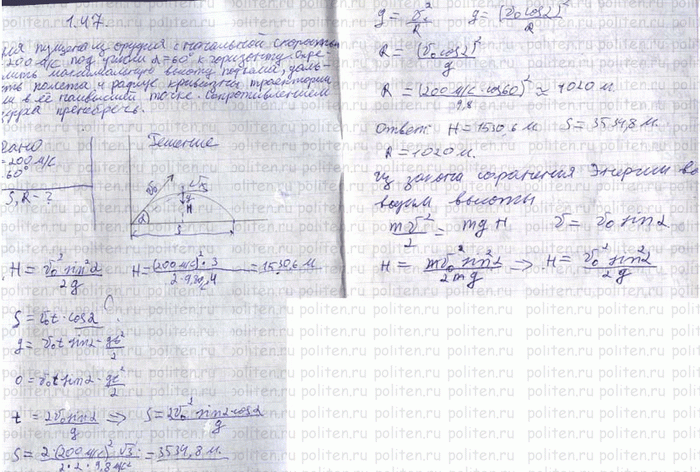 1.47
пуля пущена из орудия с начальной скоростью
200 м/с под углом α=60° к горизонту. Опре-
максимальную высоту подъёма, даль-
ть полета и радиус кривизны траектории
в её наивысшей точке. Сопротивлением
пренебречь.
Дано
=200 м/с
60°
S, R - ?
Решение
υ₀
υx
g
H
α
S
H = υ₀² sin²α / 2g
H = (200 м/с)² · 3 / 2 · 9,8 · 4 = 1530,6 м
S = υ₀t · cosα
y = υ₀t sinα - gt²/2
0 = υ₀t sinα - gt²/2
t = 2υ₀ sinα / g => S = 2υ₀² sinα·cosα / g
S = 2·(200 м/с)²·√3 / 2·2·9,8 м/с² = 3534,8 м
g = υ²/R g = (υ₀ cosα)²/R
R = (υ₀ cosα)²/g
R = (200 м/с · cos60)²/9,8 ≈ 1020 м.
Ответ: H=1530,6 м S=3534,8 м.
R=1020 м.
Из закона сохранения Энергии вы
водим высоты
mυ²/2 = mgH υ = υ₀ sinα
H = mυ₀² sin²α / 2mg => H = υ₀² sin²α / 2g
politen.ru